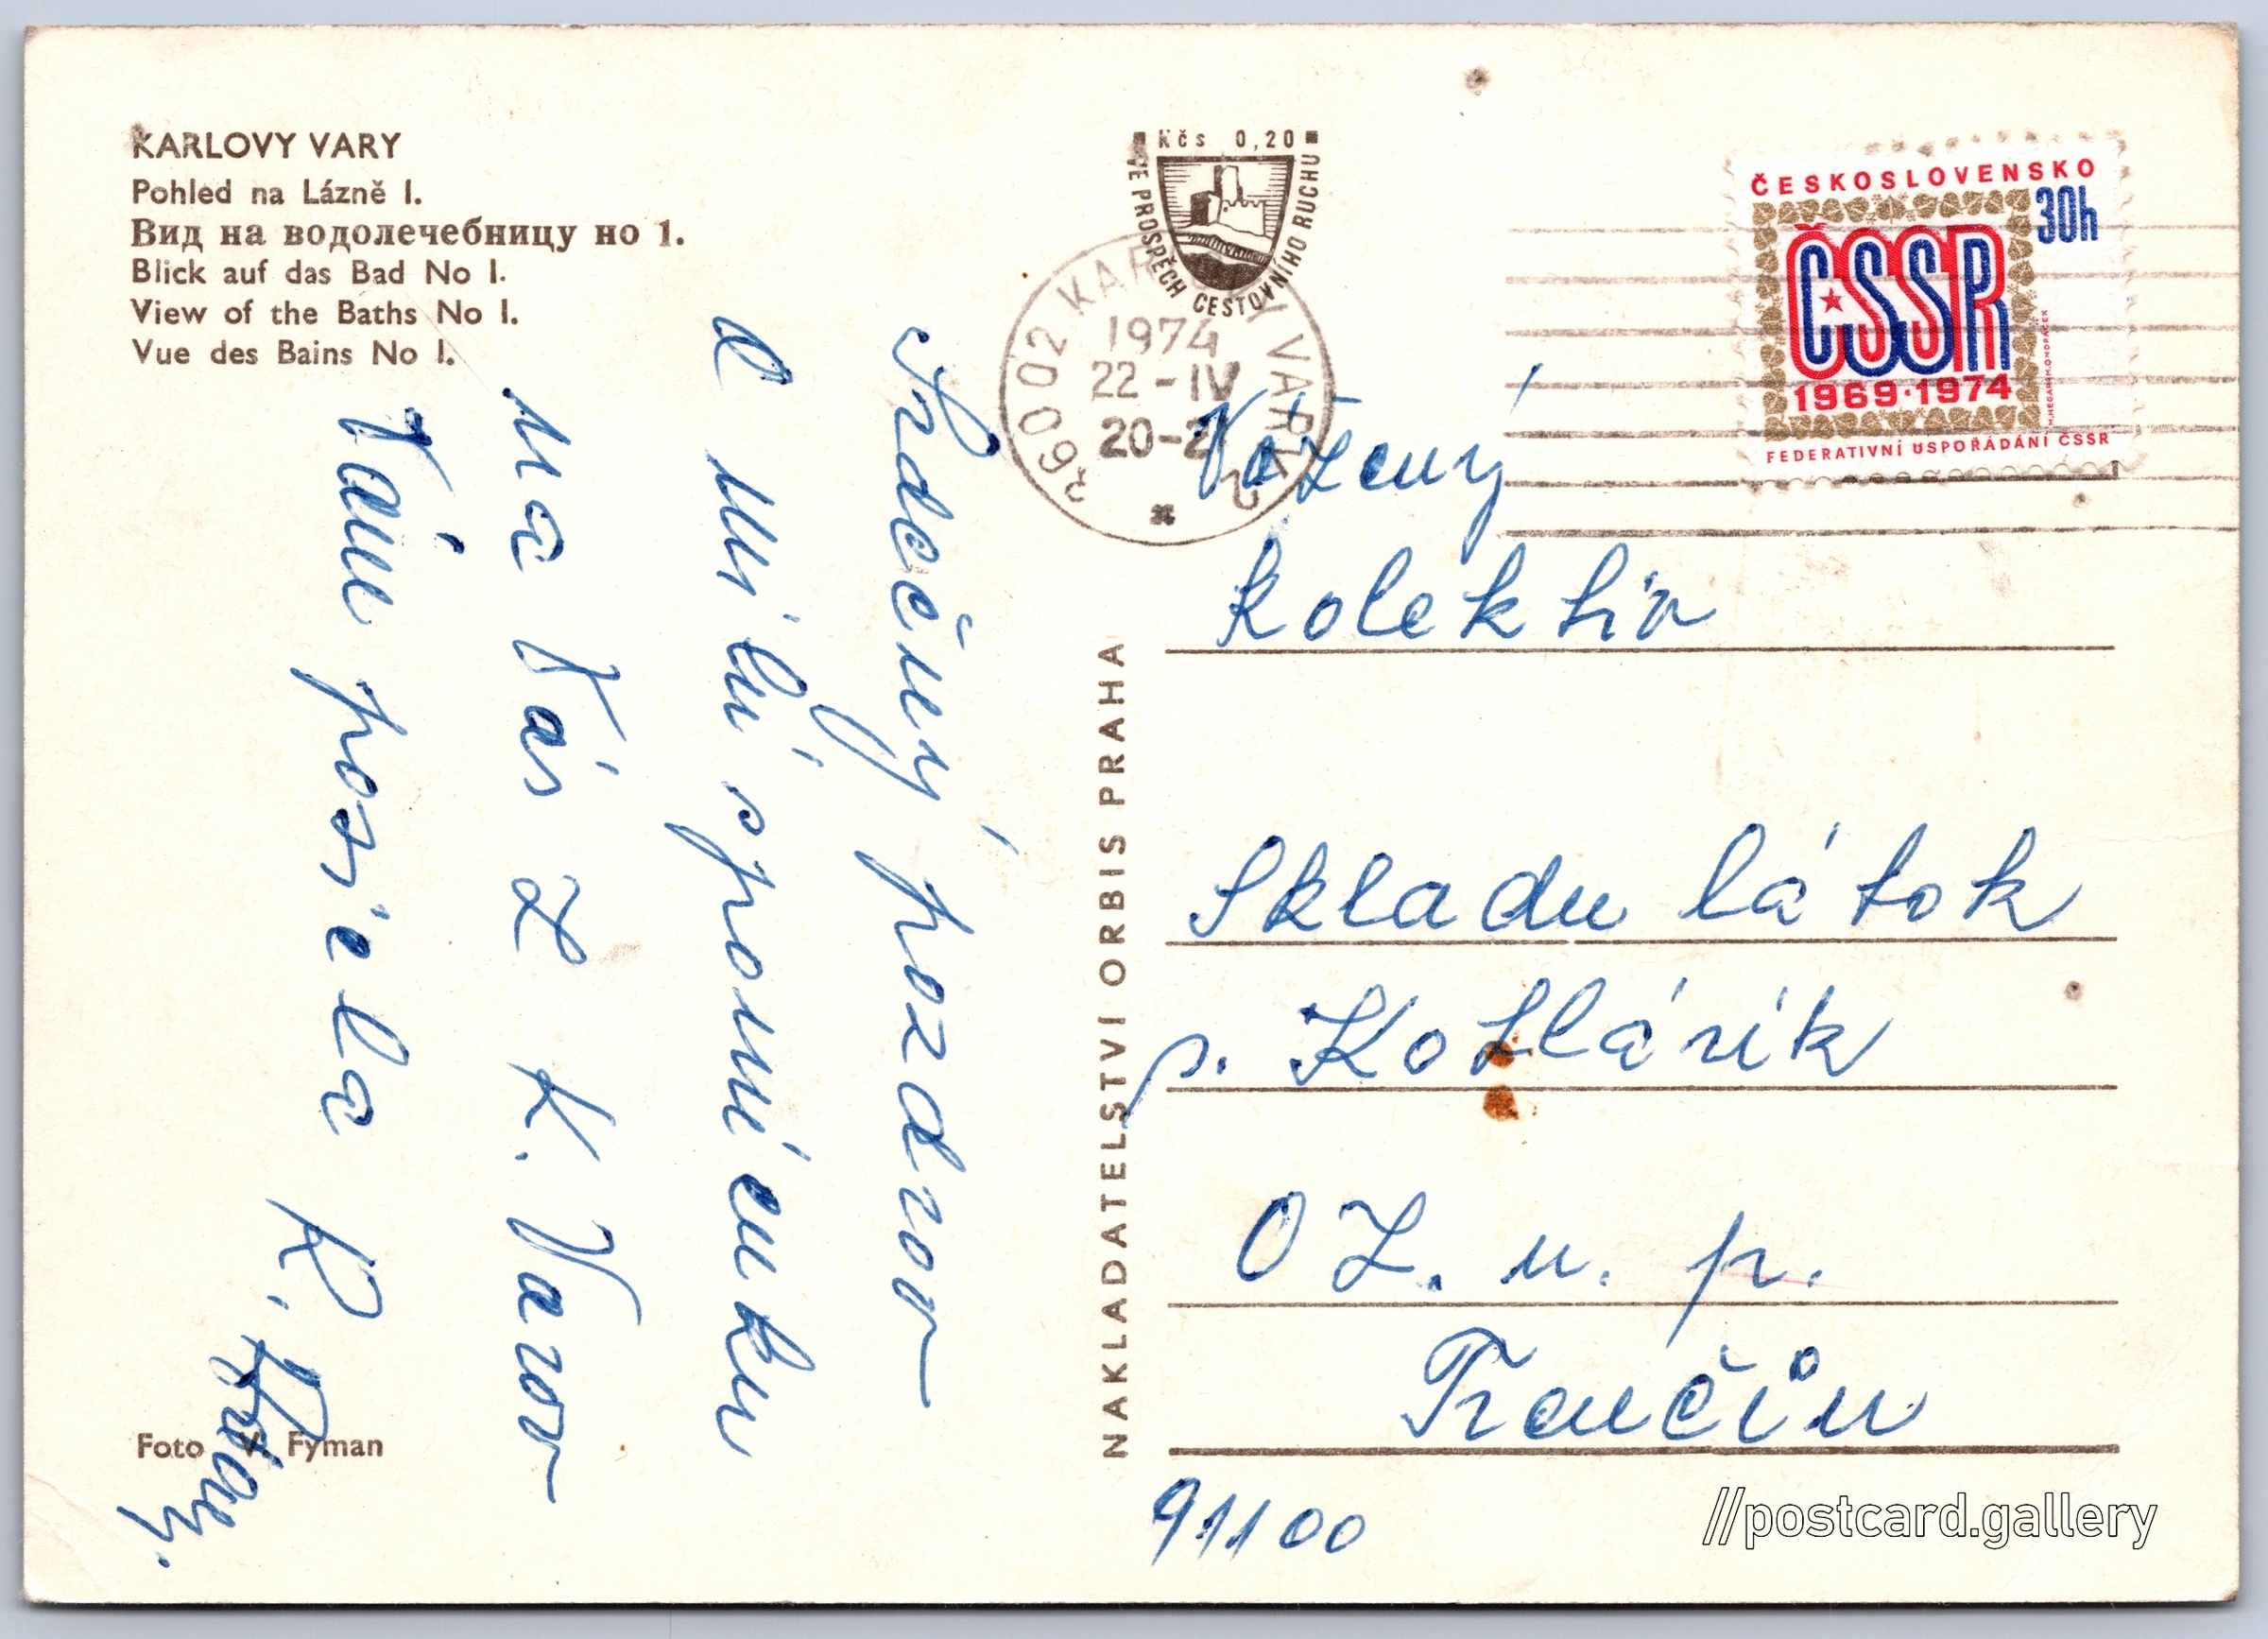 KARLOVY VARY
Pohled na Lázně I.
Вид на водолечебницу но 1.
Blick auf das Bad No I.
View of the Baths No I.
Vue des Bains No I.
Srdečný pozdrav
a milú spomienku
na Vás z K. Varov
Vám posiela R.
Foto V. Fyman
NAKLADATELSTVÍ ORBIS PRAHA
Kčs 0,20
VE PROSPĚCH CESTOVNÍHO RUCHU
360 02 KARLOVY VARY 2
1974
22-IV
20-21
ČESKOSLOVENSKO
30h
ČSSR
1969·1974
FEDERATIVNÍ USPOŘÁDÁNÍ ČSSR
Vážený
kolektív
Skladu látok
p. Kotlárik
OZ. n. p.
Trenčín
91100
//postcard.gallery